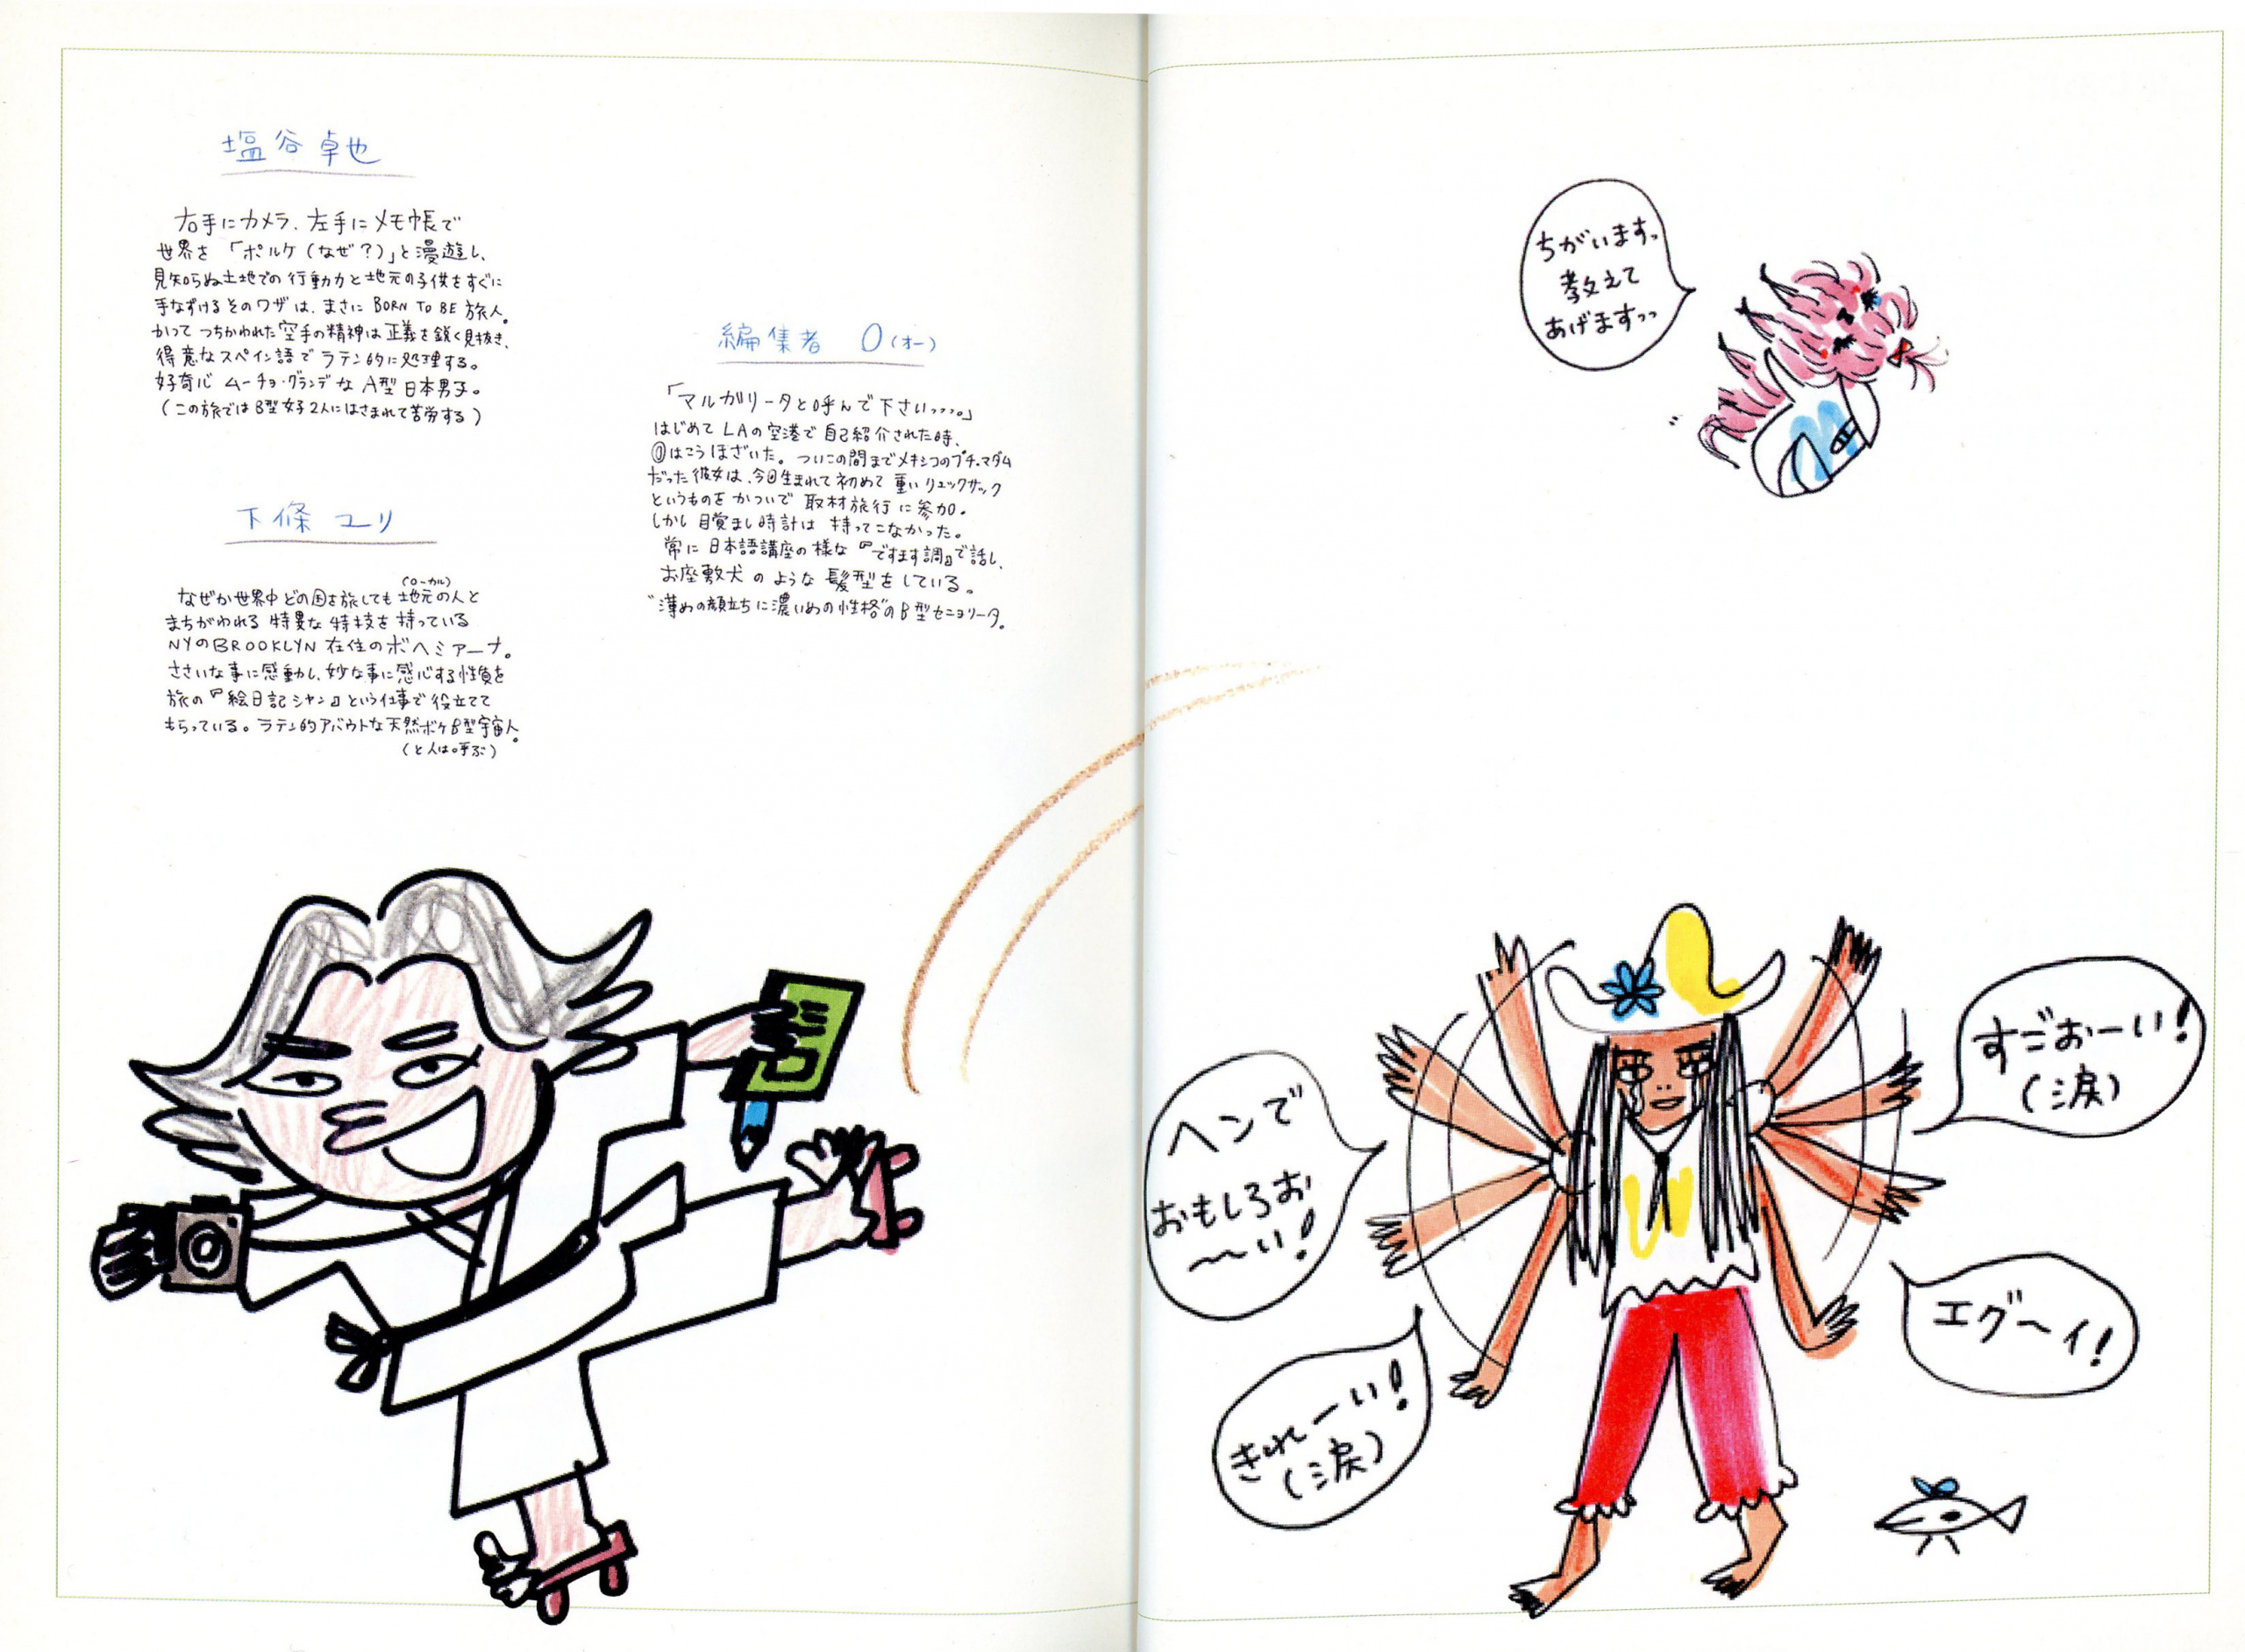 塩谷卓也
右手にカメラ、左手にメモ帳で
世界を「ポルケ(なぜ?)」と漫遊し、
見知らぬ土地での行動力と地元の子供をすぐに
手なずけるそのワザは、まさにBORN TO BE 旅人。
かつてつちかわれた空手の精神は正義を鋭く見抜き、
得意なスペイン語でラテン的に処理する。
好奇心ムーチョ・グランデなA型日本男子。
(この旅ではB型女子2人にはさまれて苦労する)
下條ユリ
(ローカル)
なぜか世界中どの国を旅しても地元の人と
まちがわれる特異な特技を持っている
NYのBROOKLYN在住のボヘミアーナ。
ささいな事に感動し、妙な事に感心する性質を
旅の『絵日記シャン』という仕事で役立てて
もらっている。ラテン的アバウトな天然ボケB型宇宙人。
(と人は呼ぶ)
編集者 O(オー)
「マルガリータと呼んで下さいっっっ。」
はじめてLAの空港で自己紹介された時、
Oはこうほざいた。ついこの間までメキシコのプチ・マダム
だった彼女は、今回生まれて初めて重いリュックサック
というものをかついで取材旅行に参加。
しかし目覚まし時計は持ってこなかった。
常に日本語講座の様な『ですます調』で話し、
お座敷犬のような髪型をしている。
"薄めの顔立ちに濃いめの性格"のB型セニョリータ。
ちがいますっ
教えて
あげますっっ
ヘンで
おもしろお
〜〜い!
すごおーい!
(涙)
エグ〜イ!
きれーい!
(涙)